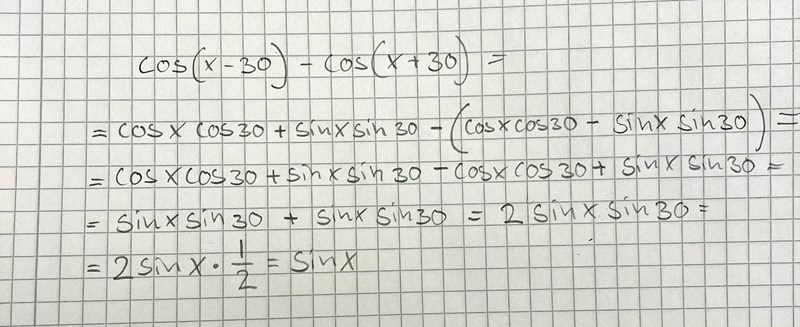 cos(x-30) - cos(x+30) =
= cosx cos30 + sinx sin30 - (cosx cos30 - sinx sin30) =
= cosx cos30 + sinx sin30 - cosx cos30 + sinx sin30 =
= sinx sin30 + sinx sin30 = 2 sinx sin30 =
= 2 sinx · 1/2 = sinx